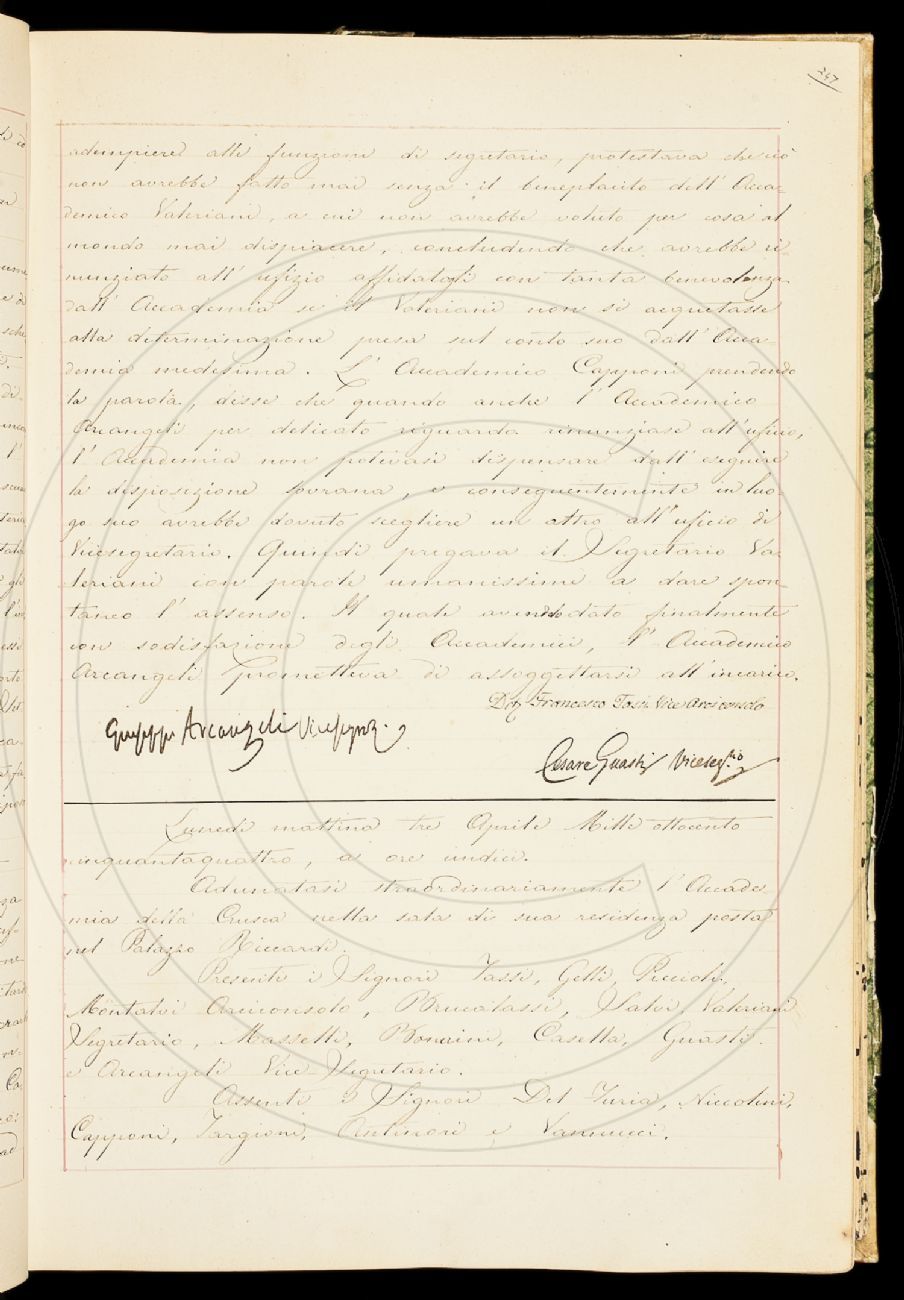 247
adempiere alle funzioni di segretario, protestava che ciò
non avrebbe fatto mai senza il beneplacito dell' Acca-
demico Valeriani, a cui non avrebbe voluto per cosa al
mondo mai dispiacere, concludendo che avrebbe ri-
nunziato all' ufizio affidatogli con tanta benevolenza
dall' Accademia se il Valeriani non si acquetasse
alla determinazione presa sul conto suo dall' Acca-
demia medesima. L' Accademico Capponi prendendo
la parola, disse che quando anche l' Accademico
Arcangeli per delicato riguardo rinunziase all' uficio,
l' Accademia non potevasi dispensare dall' eseguire
la disposizione sovrana, e conseguentemente in luo-
go suo avrebbe dovuto scegliere un altro all' uficio di
Vicesegretario. Quindi pregava il Segretario Va-
leriani con parole umanissime a dare spon-
taneo l' assenso. Il quale avendolo dato finalmente
con sodisfazione degli Accademici, l' Accademico
Arcangeli prometteva di assoggettarsi all' incarico.
Francesco Tosi Vice Arciconsolo
Giuseppe Arcangeli
Cesare Guasti Viceseg.rio
Lunedì mattina tre Aprile Mille ottocento
cinquantaquattro, a ore undici.
Adunatasi straordinariamente l' Accade-
mia della Crusca nella sala di sua residenza posta
nel Palazzo Riccardi.
Presenti i Signori Tassi, Gelli, Piccioli,
Montalvi Arciconsolo, Brucalassi, Salvi, Valeriani
Segretario, Masselli, Bonaini, Casella, Guasti
e Arcangeli Vice-Segretario.
Assenti i Signori Del Furia, Niccolini,
Capponi, Targioni, Antinori e Vannucci.